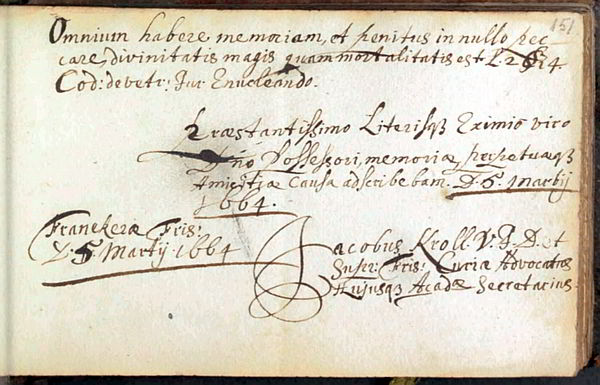 151
Omnium habere memoriam, et penitus in nullo pec
care, divinitatis magis quam mortalitatis est L. 2 § 14.
Cod: de vetr: Jur Enucleando.
Præstantissimo Literisqꝫ Eximio viro
Dno Possessori, memoriæ, perpetuæqꝫ
Amicitiæ Causa adscribebam. D. 5. Martij
1664.
Franekeræ Fris:
D. 5. Martij 1664
Jacobus Kroll. V. J. D. et
Supr: Fris: Curiæ Advocatus
Hujusqꝫ Acadæ Secretarius.